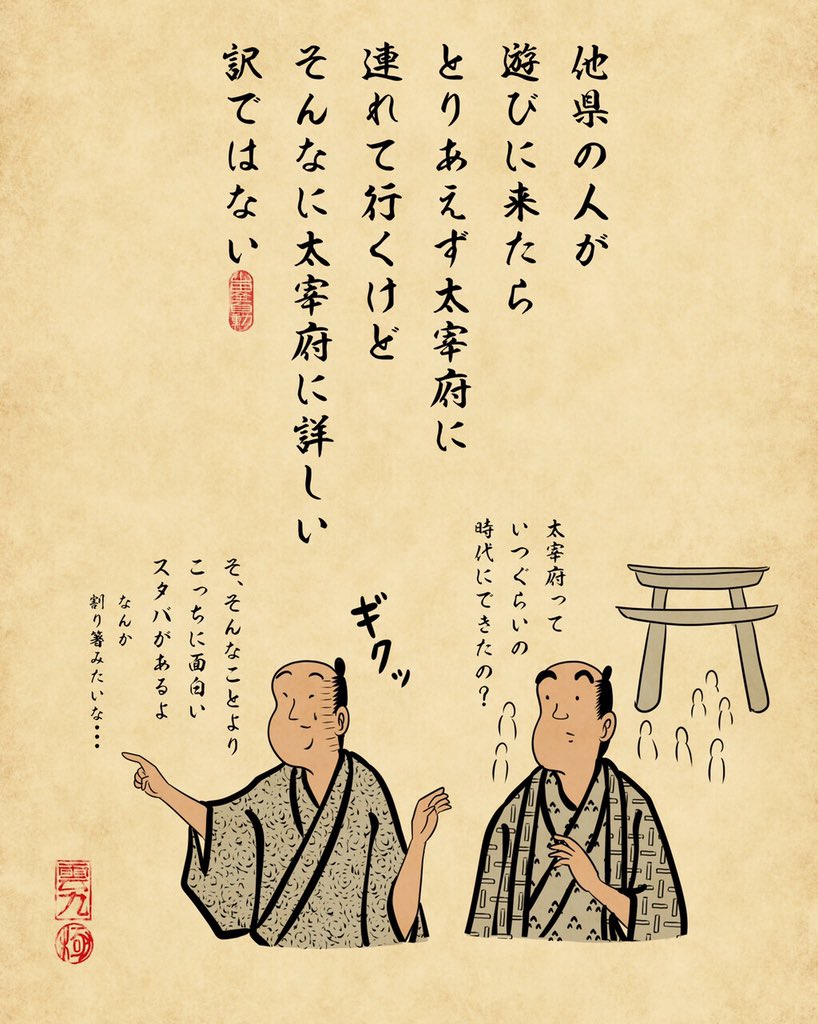 他県の人が
遊びに来たら
とりあえず太宰府に
連れて行くけど
そんなに太宰府に詳しい
訳ではない
太宰府って
いつぐらいの
時代にできたの?
ギクッ
そ、そんなことより
こっちに面白い
スタバがあるよ
なんか
割り箸みたいな・・・